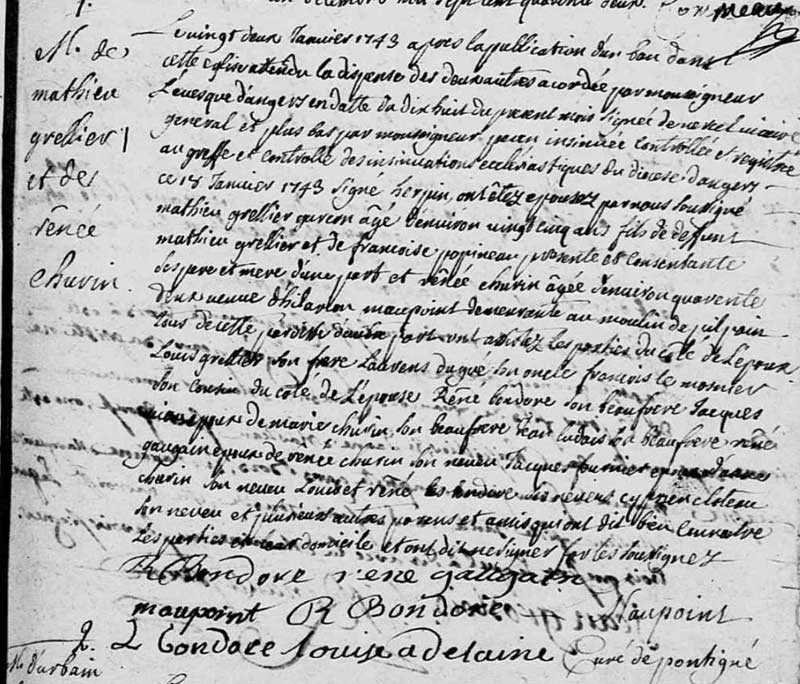 en decembre mil sept cent quarente deux.
M. de
mathieu
grellier
et de
rênée
churin
Le vingt deux Janvier 1743 apres la publication d'un ban dans
cette eglise attendu la dispense des deux autres acordée par monseigneur
L'evesque d'angers en datte du dix huit du present mois signée de vicaire
general et plus bas par monseigneur insinuée controllée et registrée
au greffe et controlle des insinuations ecclesiastiques du diocese d'angers
ce 18 Janvier 1743 signé herpin, ont êtez epousez par nous sousigné
mathieu grellier garson âgé d'environ vingt cinq ans fils de deffunt
mathieu grellier et de francoise popineau presente et consentante
ses pere et mere d'une part et rênée churin âgée d'environ quarente
deux veuve d'hilarion maupoint demeurante au moulin de
tous de cette paroisse d'autre part ont assistez les parties du coté de L'epoux
Louis grellier son frere Laurens dugué son oncle francois le monier
son cousin du coté de L'epouse Rêné bondore son beaufrere Jacques
epoux de marie churin son beaufrere Jean ludais son beaufrere rêné
gaugain epoux de renée churin son neveu Jacques fournier epoux d'anne
churin son neveu Louis et rené les bondore ses neveux cyprien cloteau
son neveu et plusieurs autres parens et amis qui ont dit bien connaitre
Les parties et leur domicile et ont dit ne signer for les sousignez
R Bondore rene gaugain
maupoint R Bondore Maupoint
L Bondore Louise adelaine Curé de pontigné
M. d'urbain